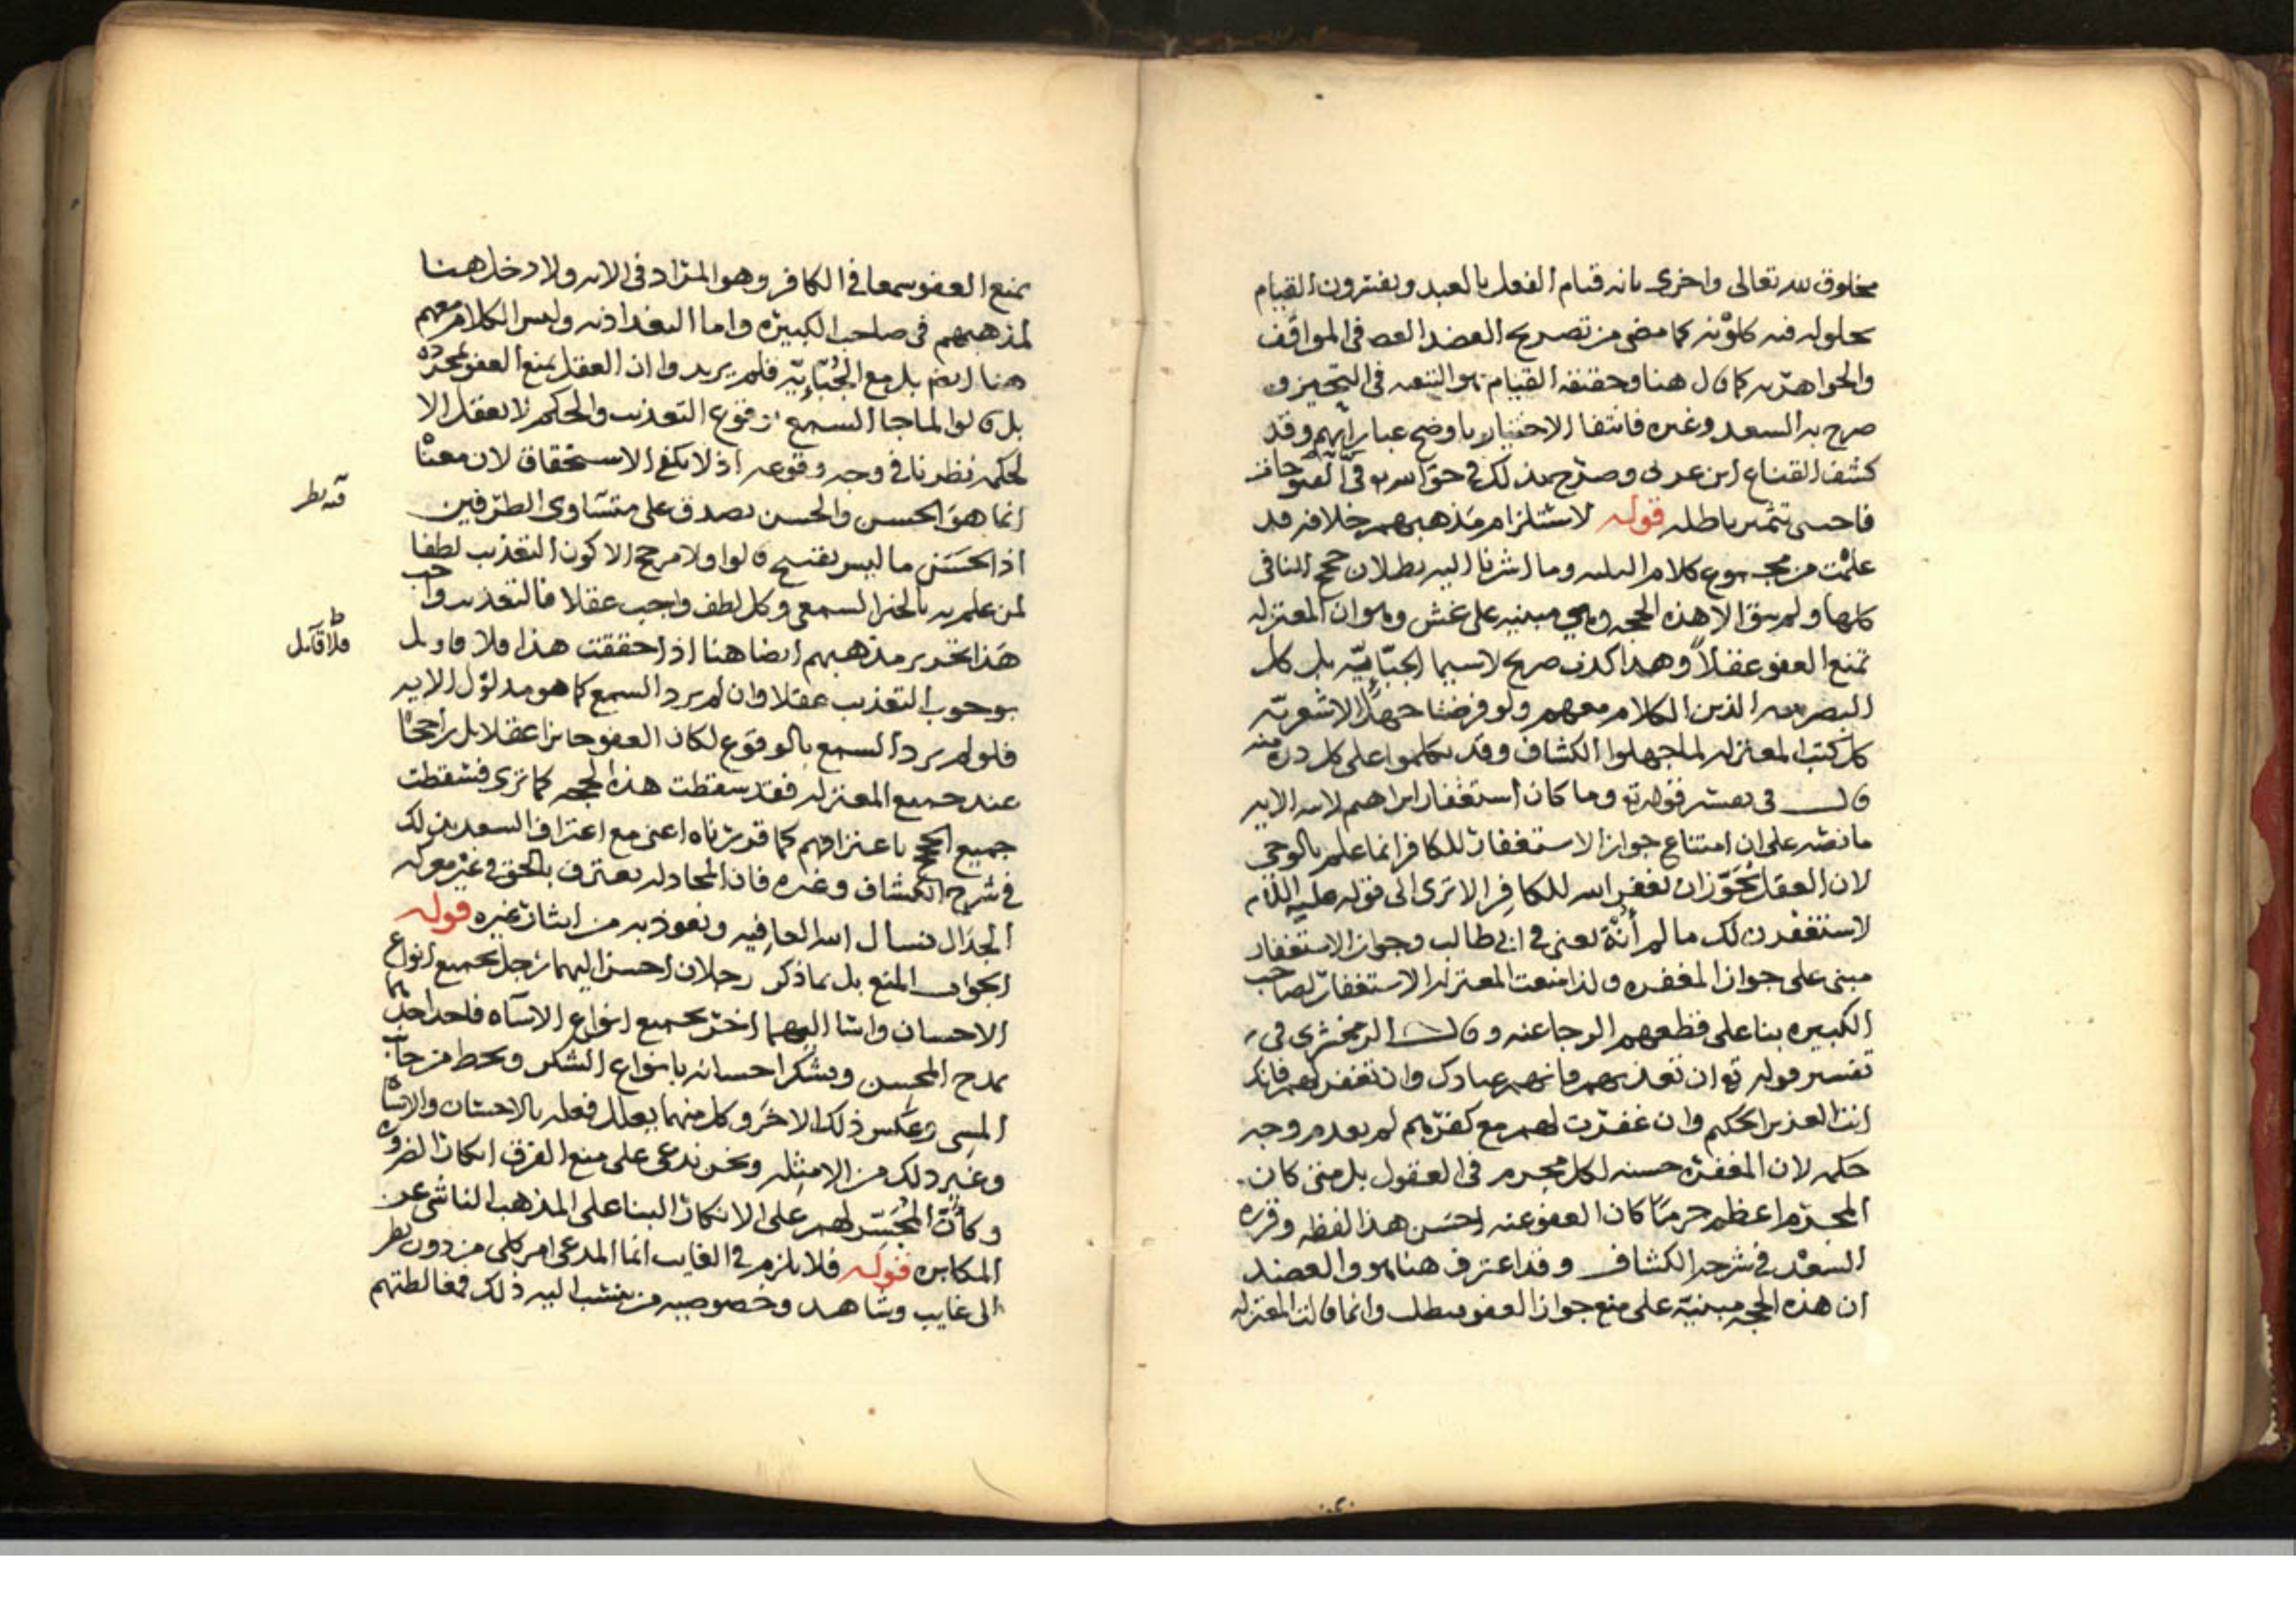 مخلوق لله تعالى واخرى بانه قيام الفعل بالعبد ويفسرون القيام
بحلوله فيه كلونه كما مضى من تصريح العضد في المواقف
والجواهر به كما قال هنا وحقيقة القيام هو التبعيه في التحيز و
صرح به السعد وغيره فانتفا الاختيار باوضح عباراتهم وقد
كشف القناع ابن عربى وصرح بذلك في حق الله
باطله قوله لاستلزام مذهبهم خلافه قد
علمت من مجموع كلام وما اشرنا اليه بطلان حجج النافي
كلها ولم يبق الا هذه الحجه وهي مبنيه على غش وهو ان المعتزله
تمنع العفو عقلاً وهذا كذب صريح لاسيما الجبّائيّه بل كل
البصريه الذين الكلام معهم ولو فرضنا جهل الاشعريّه
كل كتب المعتزله لما جهلوا الكشاف وقد تكلموا على كل درة منه
قال في تفسير قوله تع وما كان استغفار ابراهيم لابيه الايه
ما نصّه على ان امتناع جواز الاستغفار للكافر انما علم بالوحى
لان العقل يُجَوّز ان يغفر الله للكافر الا ترى الى قوله عليه السلام
لاستغفرن لك ما لم أُنْهَ يعنى في ابى طالب وجواز الاستغفار
مبنى على جواز المغفره ولذا منعت المعتزله الاستغفار لصاحب
الكبيره بنا على قطعهم الرجا عنه وقال الزمخشرى فى
تفسير قوله تع ان تعذبهم فانهم عبادك وان تغفر لهم فانك
انت العزيز الحكيم وان غفرت لهم مع كفرهم لم يعدم وجه
حكمه لان المغفره حسنه لكل مجرم فى العقول بل متى كان
المجرم اعظم جرمًا كان العفو عنه احسن هذا لفظه وقرره
السعد في شرحه الكشاف وقد اعترف هنا هو والعضد
ان هذه الحجه مبنيّة على منع جواز العفو وانما قالت المعتزله
يمنع العفو سمعا في الكافر وهو المراد فى الايه ولا دخل هنا
لمذهبهم فى صاحب الكبيره واما البغداذيه وليس الكلام معهم
هنا ايضا بل مع الجُبّائيّه فلم يريدوا ان العقل يمنع العفو لمجرده
بل قالوا لما جا السمع بوقوع التعذيب والحكيم لا يفعل الا
لحكمه نظرنا في وجه وقوعه اذ لا يكفى الاستحقاق لان معناه
انما هو الحسن والحسن يصدق على متساوى الطرفين
اذ الحَسَن ما ليس بقبيح قالوا ولا مرجح الا كون التعذيب لطفا
لمن علم به بالخبر السمعى وكل لطف واجب عقلا فالتعذيب واجب
هذا تحرير مذهبهم ايضا هنا اذا حققت هذا فلا قايل
بوجوب التعذيب عقلا وان لم يرد السمع كما هو مدلول الايه
فلو لم يرد السمع بالوقوع لكان العفو جايزا عقلا بل راجحًا
عند جميع المعتزله فقد سقطت هذه الحجه كما ترى فسقطت
جميع الحجج باعترافهم كما قدرناه اعنى مع اعتراف السعد بذلك
في شرح الكشاف وغيره فان المجادل يعترف بالحق في غير معركه
الجدال نسال الله العافيه ونعوذ به من ايثار غيره قوله
الجواب المنع بل بما ذكر رجلان احسن اليهما رجل بجميع انواع
الاحسان واسا اليهما اخر بجميع انواع الاساه فاحد
يمدح المحسن ويشكر احسانه بانواع الشكر ويحط من جانب
المسى وعكس ذلك الاخر وكل منهما يعلل فعله بالاحسان والاساه
وغير ذلك من الامثله ونحن ندعى على منع الفرق انكار الضروره
وكأنّ لهم على الانكار البنا على المذهب الناشى عن
المكابره قوله فلا يلزم في الغايب انما المدعى امر كلى من دون نظر
الى غايب وشاهد وخصوصيه من ينسب اليه ذلك فمغالطتهم
فلا قايل